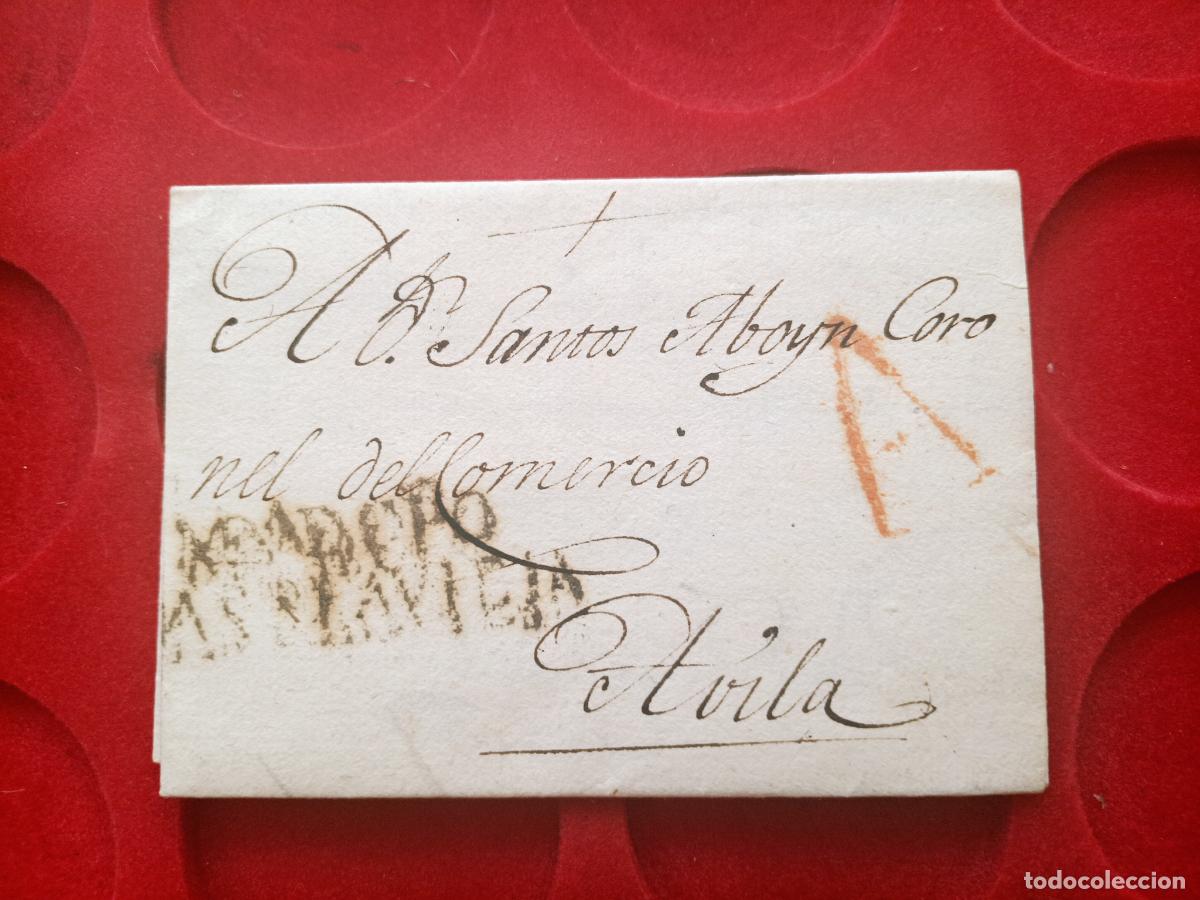 A Dn. Santos Aboyn Coro
nel del Comercio
Avila
A
CAST LAVIEJA
todocoleccion